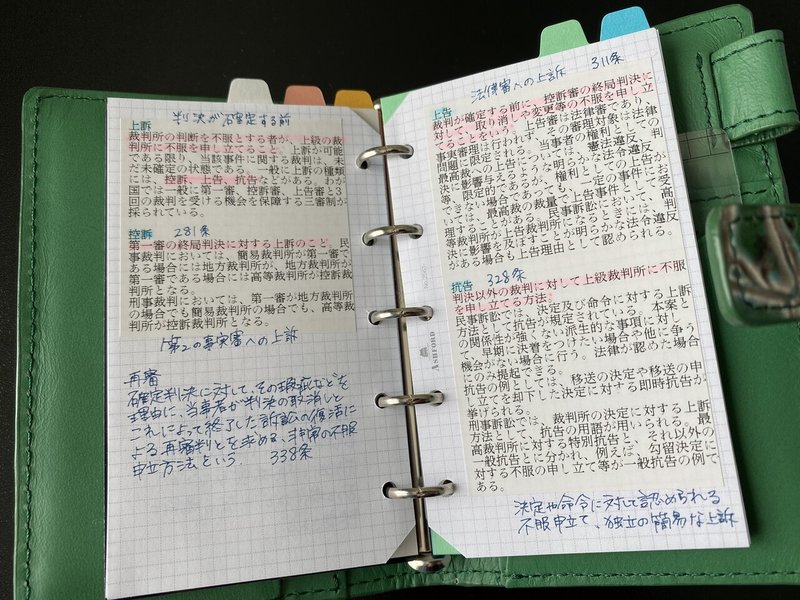 判決が確定する前
上訴
裁判所の判断を不服とする者が、上級の裁
判所に不服を申し立てること。上訴が可能
である限り、当該事件に関する裁判は、未
だ未確定の状態である。一般に上訴の種類
には、控訴、上告、抗告などがある。わが
国では一般に第一審、控訴審、上告審と3
回の裁判を受ける機会を保障する三審制が
採られている。
控訴 281条
第一審の終局判決に対する上訴のこと。民
事裁判においては、簡易裁判所が第一審で
ある場合には地方裁判所が、地方裁判所が
第一審である場合には高等裁判所が控訴裁
判所となる。
刑事裁判においては、第一審が地方裁判所
の場合でも簡易裁判所の場合でも、高等裁
判所が控訴裁判所となる。
第2の事実審への上訴
再審
確定判決に対して、その瑕疵などを
理由に、当事者が判決の取消しと
これによって終了した訴訟の復活に
よる再審判とを求める、非常の不服
申立方法という 338条
法律審への上訴 311条
上告
裁判が確定する前に、控訴審の終局判決に
対して、取り消しや変更等の不服を申し立
てることをいう。上告審は法律審であり、
事実審理は行われず、その審理対象は法律
問題に限定される。当事者の権利としての
最高裁への上告については、憲法違反、判
決に影響を与えるような明らかな法令違反
等、限定的であるが、権利としての上告が
できない場合であっても、一定の事件にお
いては、最高裁の裁量で上告事件として受
理されることがある。民事訴訟において高
等裁判所が上告裁判所になるときには、判
決に影響を及ぼすことが明らかな法令違反
がある場合も上告理由として認められる。
抗告 328条
判決以外の裁判に対して上級裁判所に不服
を申し立てる方法。
民事訴訟では、決定及び命令に対する上訴
方法として抗告が規定されている。本案と
の関係性が強くない派生的な事項に対し
て、早期に決着をつけたい場合や他に争う
機会がない場合に行う。法律が認めた場合
にのみ提起できる。
抗告の例としては、移送の決定や移送の申
し立てを却下した決定に対する即時抗告が
挙げられる。
刑事訴訟では、裁判所の決定に対する上訴
方法として、抗告の用語が用いられる。最
高裁判所に対する特別抗告と、それ以外の
一般抗告とに分かれ、例えば、勾留決定に
対する不服の申し立て等が一般抗告の例で
ある。
決定や命令に対して認められる
不服申立て、独立の簡易な上訴
ASHFORD